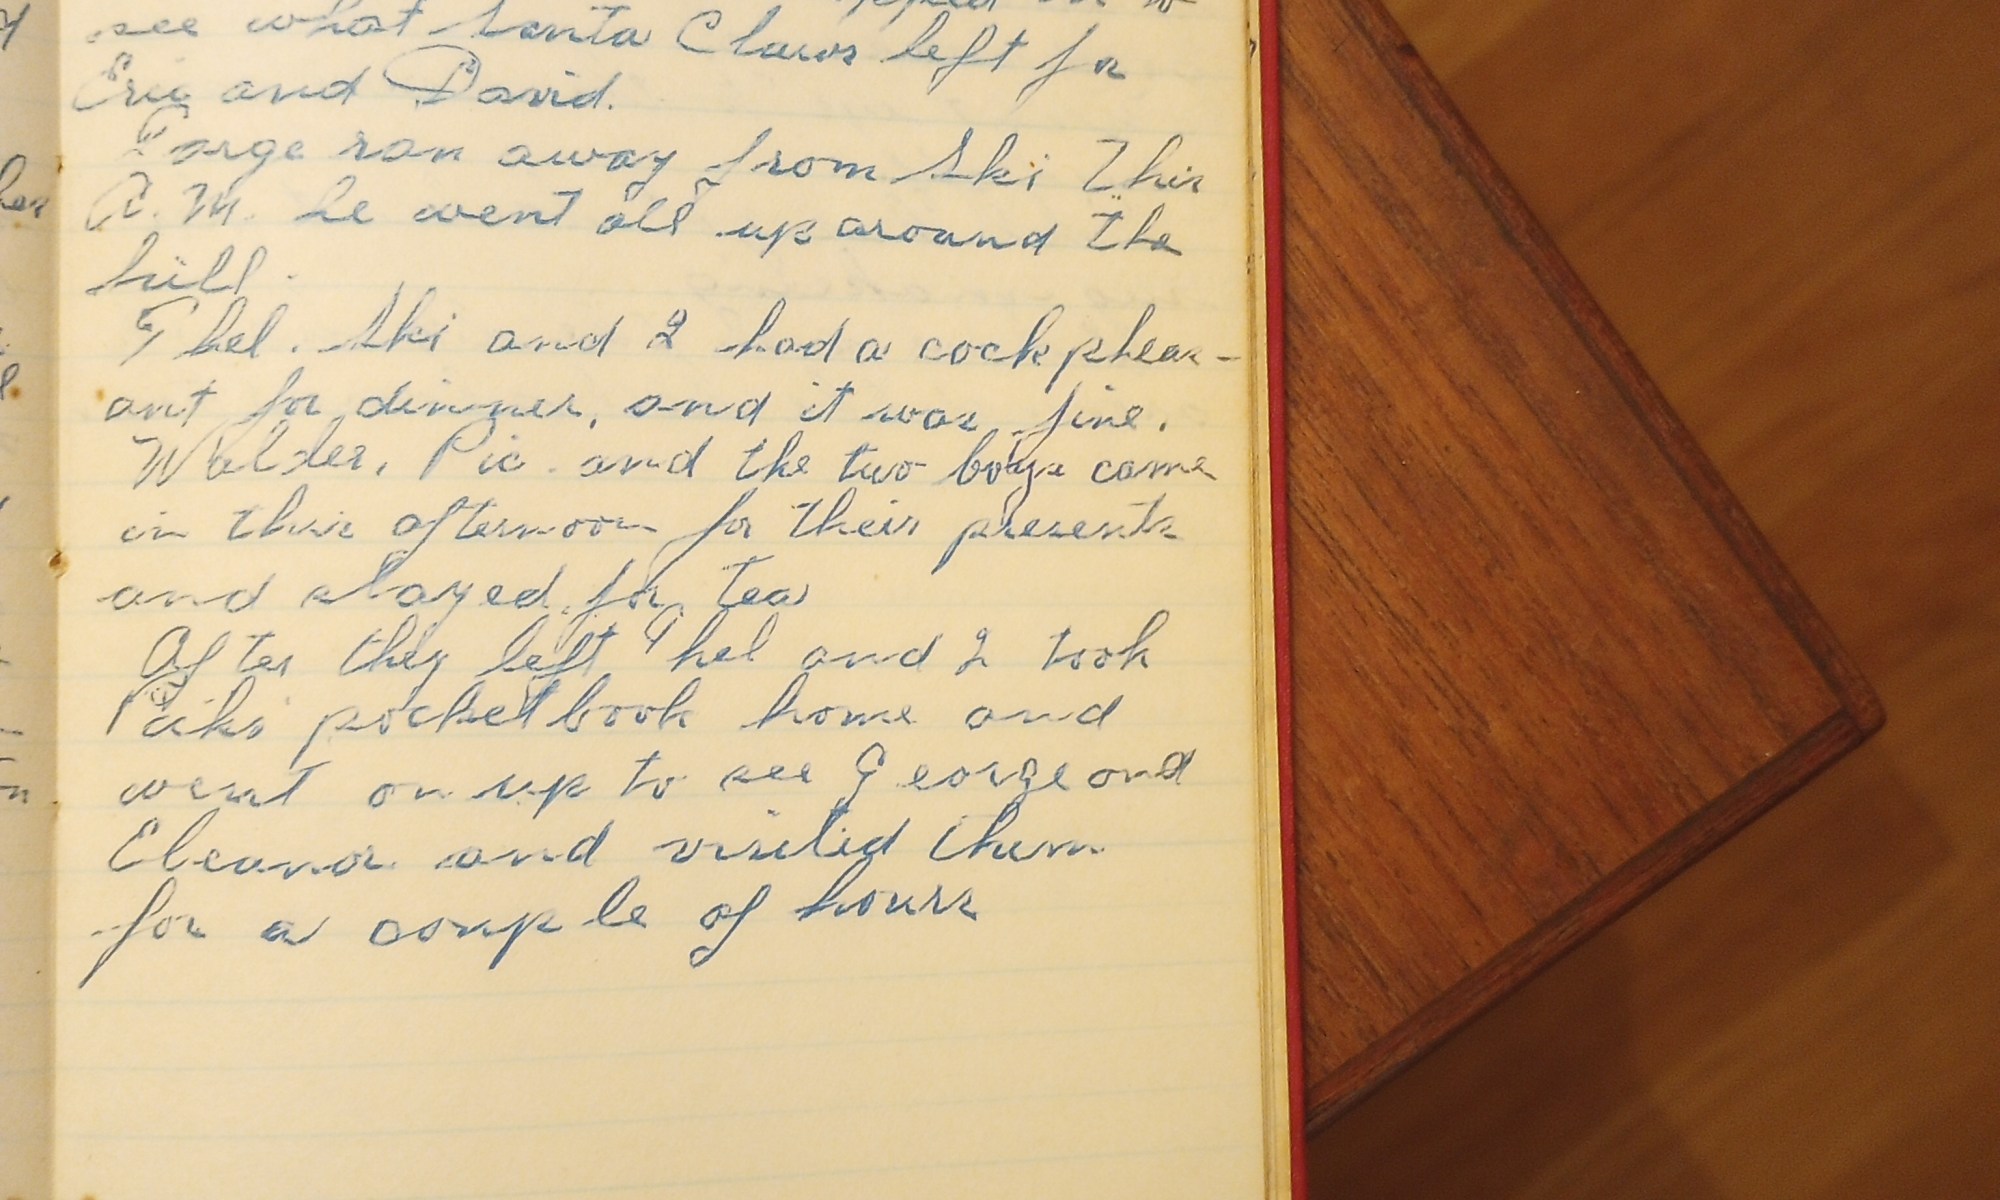 see what Santa Claus left for
Eric and David.
Targe ran away from Ski This
A.M. he went all up around the
hill.
Thel. Ski and I had a cock pheas-
ant for dinner, and it was fine.
Walder, Pic. and the two boys came
in this afternoon for their presents
and stayed for tea
After they left Thel and I took
pocketbook home and
went on up to see George and
Eleanor and visited them
for a couple of hours